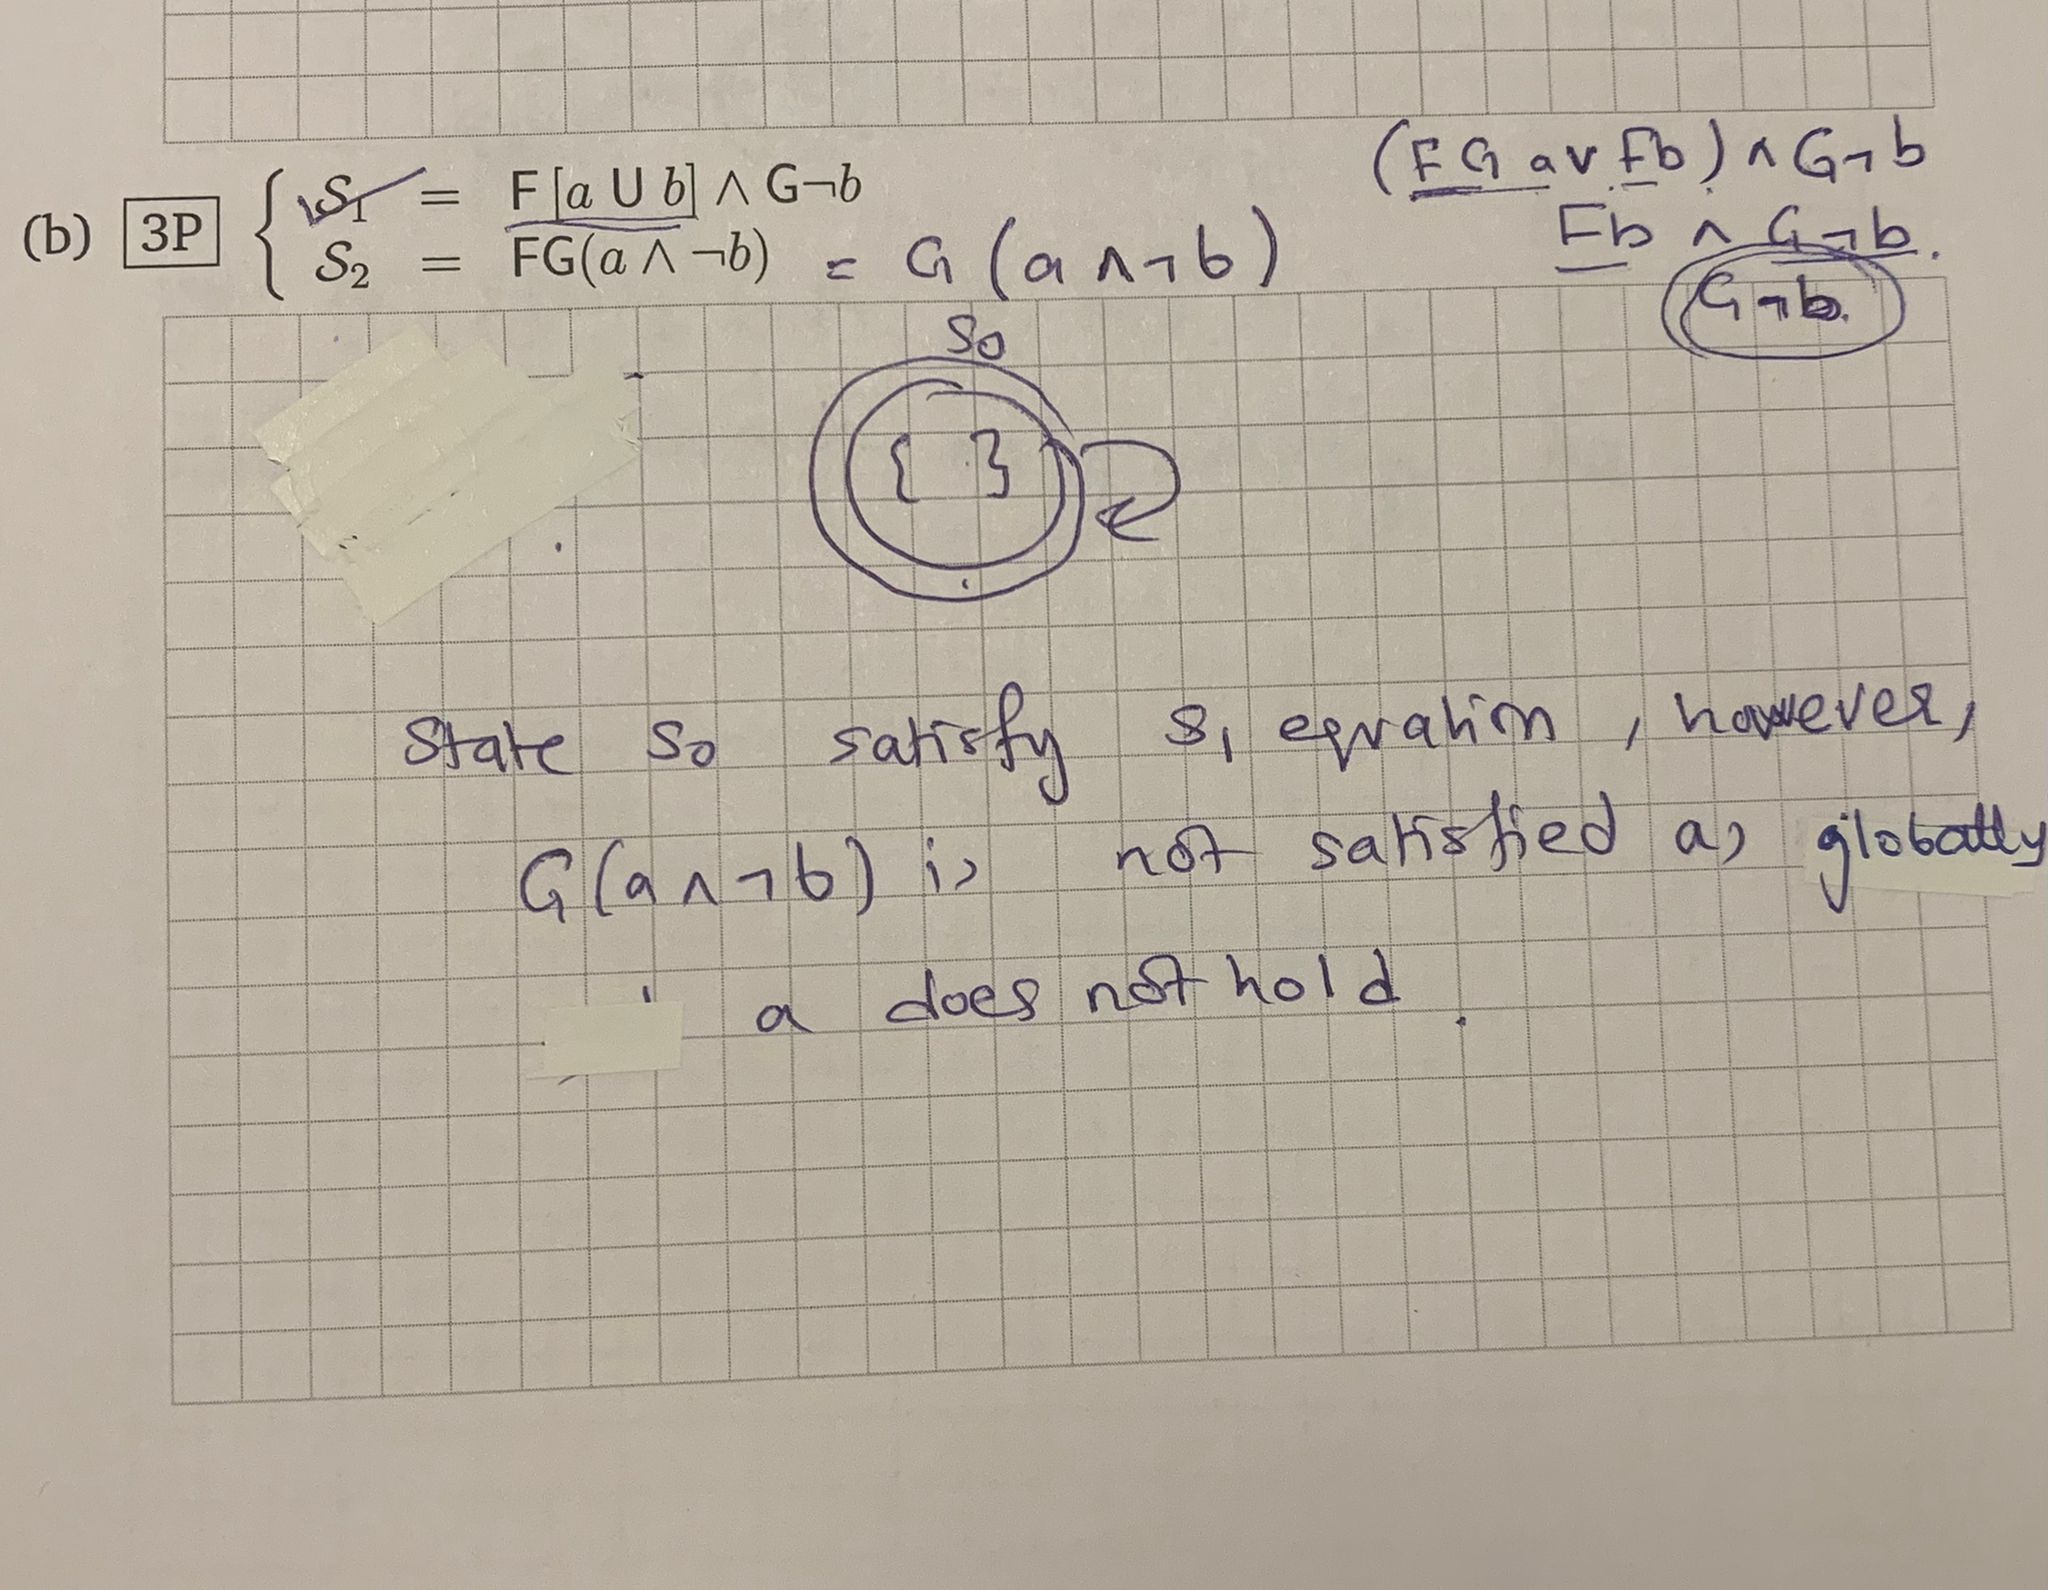 (F G a ∨ Fb) ∧ G¬b
(b) 3P { S₁ = F[a U b] ∧ G¬b
S₂ = FG(a ∧ ¬b) = G (a ∧ ¬b)
Fb ∧ G¬b.
G¬b.
S₀
{ }
State S₀ satisfy S₁ equation, however,
G(a ∧ ¬b) is not satisfied as globally
a does not hold.